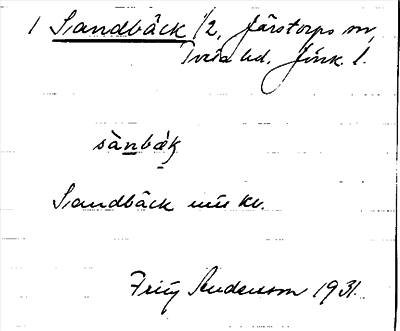 1 Sandbäck 1/2, Järstorps sn,
Tveta hd. Jönk. l.
sànbæ̀k
Sandbäck
Fritz Anderson 1931.